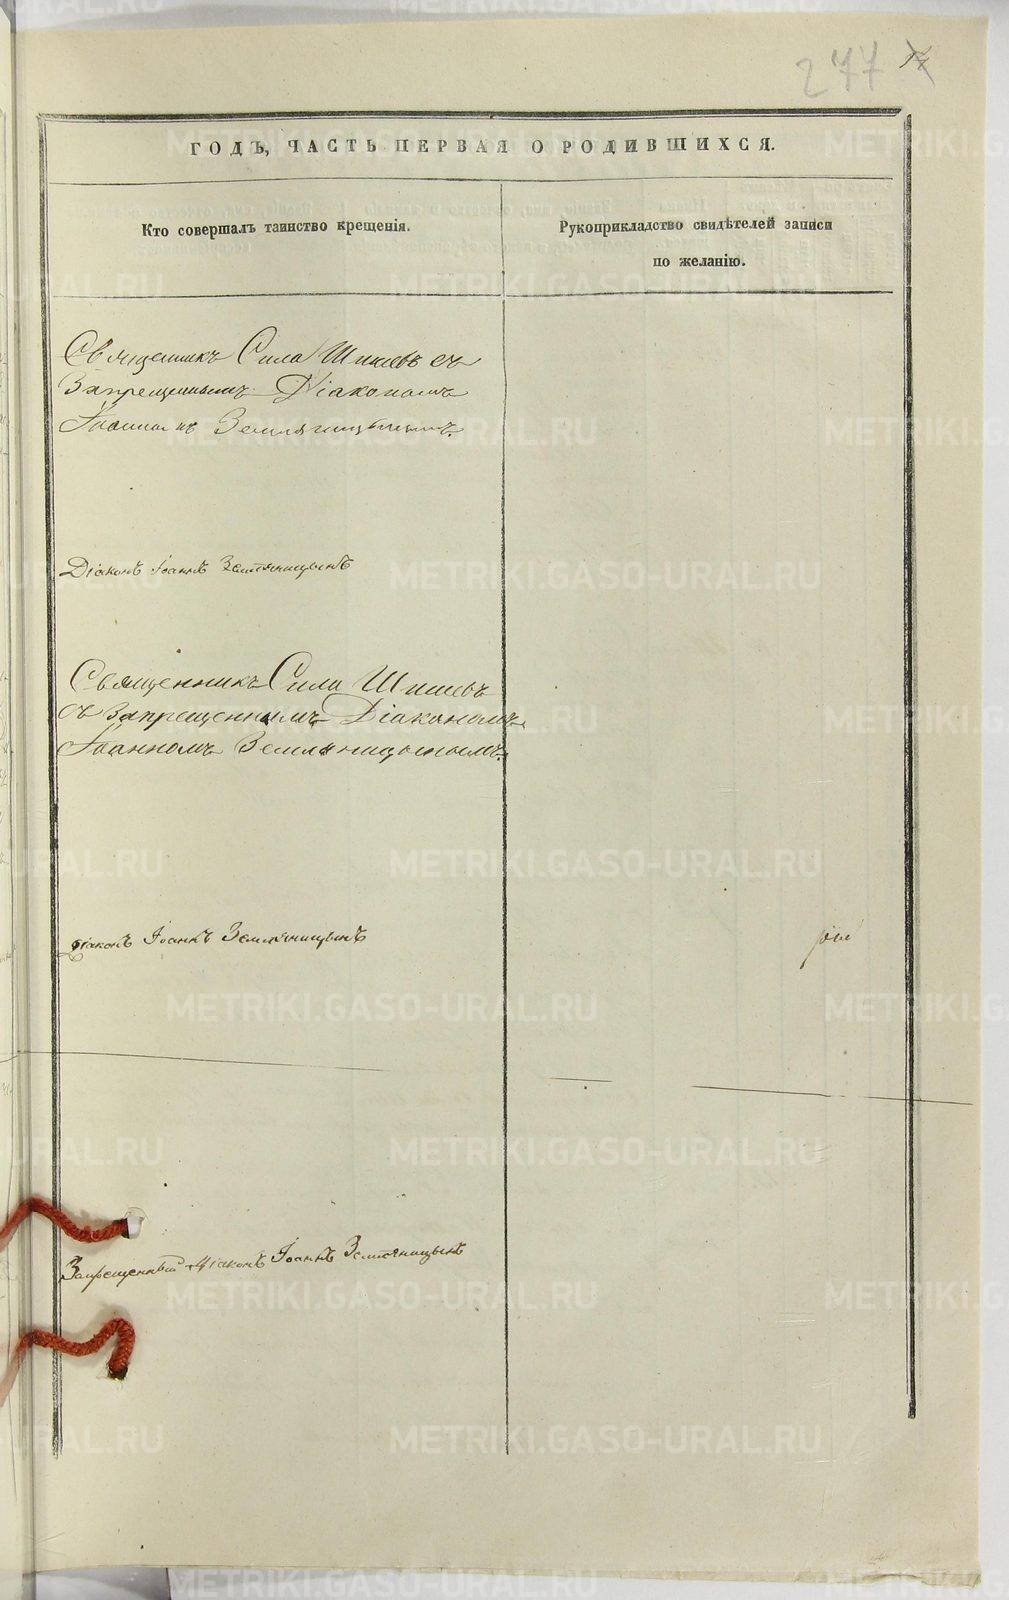 277 14
ГОДЪ, ЧАСТЬ ПЕРВАЯ О РОДИВШИХСЯ.
Кто совершалъ таинство крещенія.
Рукоприкладство свидѣтелей записи
по желанію.
Священникъ Сила Шишевъ съ
Запрещеннымъ Діакономъ
Іоанномъ Земляницынымъ.
Діаконъ Іоаннъ Земляницынъ
Священникъ Сила Шишевъ
съ запрещеннымъ Діакономъ
Іоанномъ Земляницынымъ.
Діаконъ Іоаннъ Земляницынъ
Запрещенный Діаконъ Іоаннъ Земляницынъ
METRIKI.GASO-URAL.RU